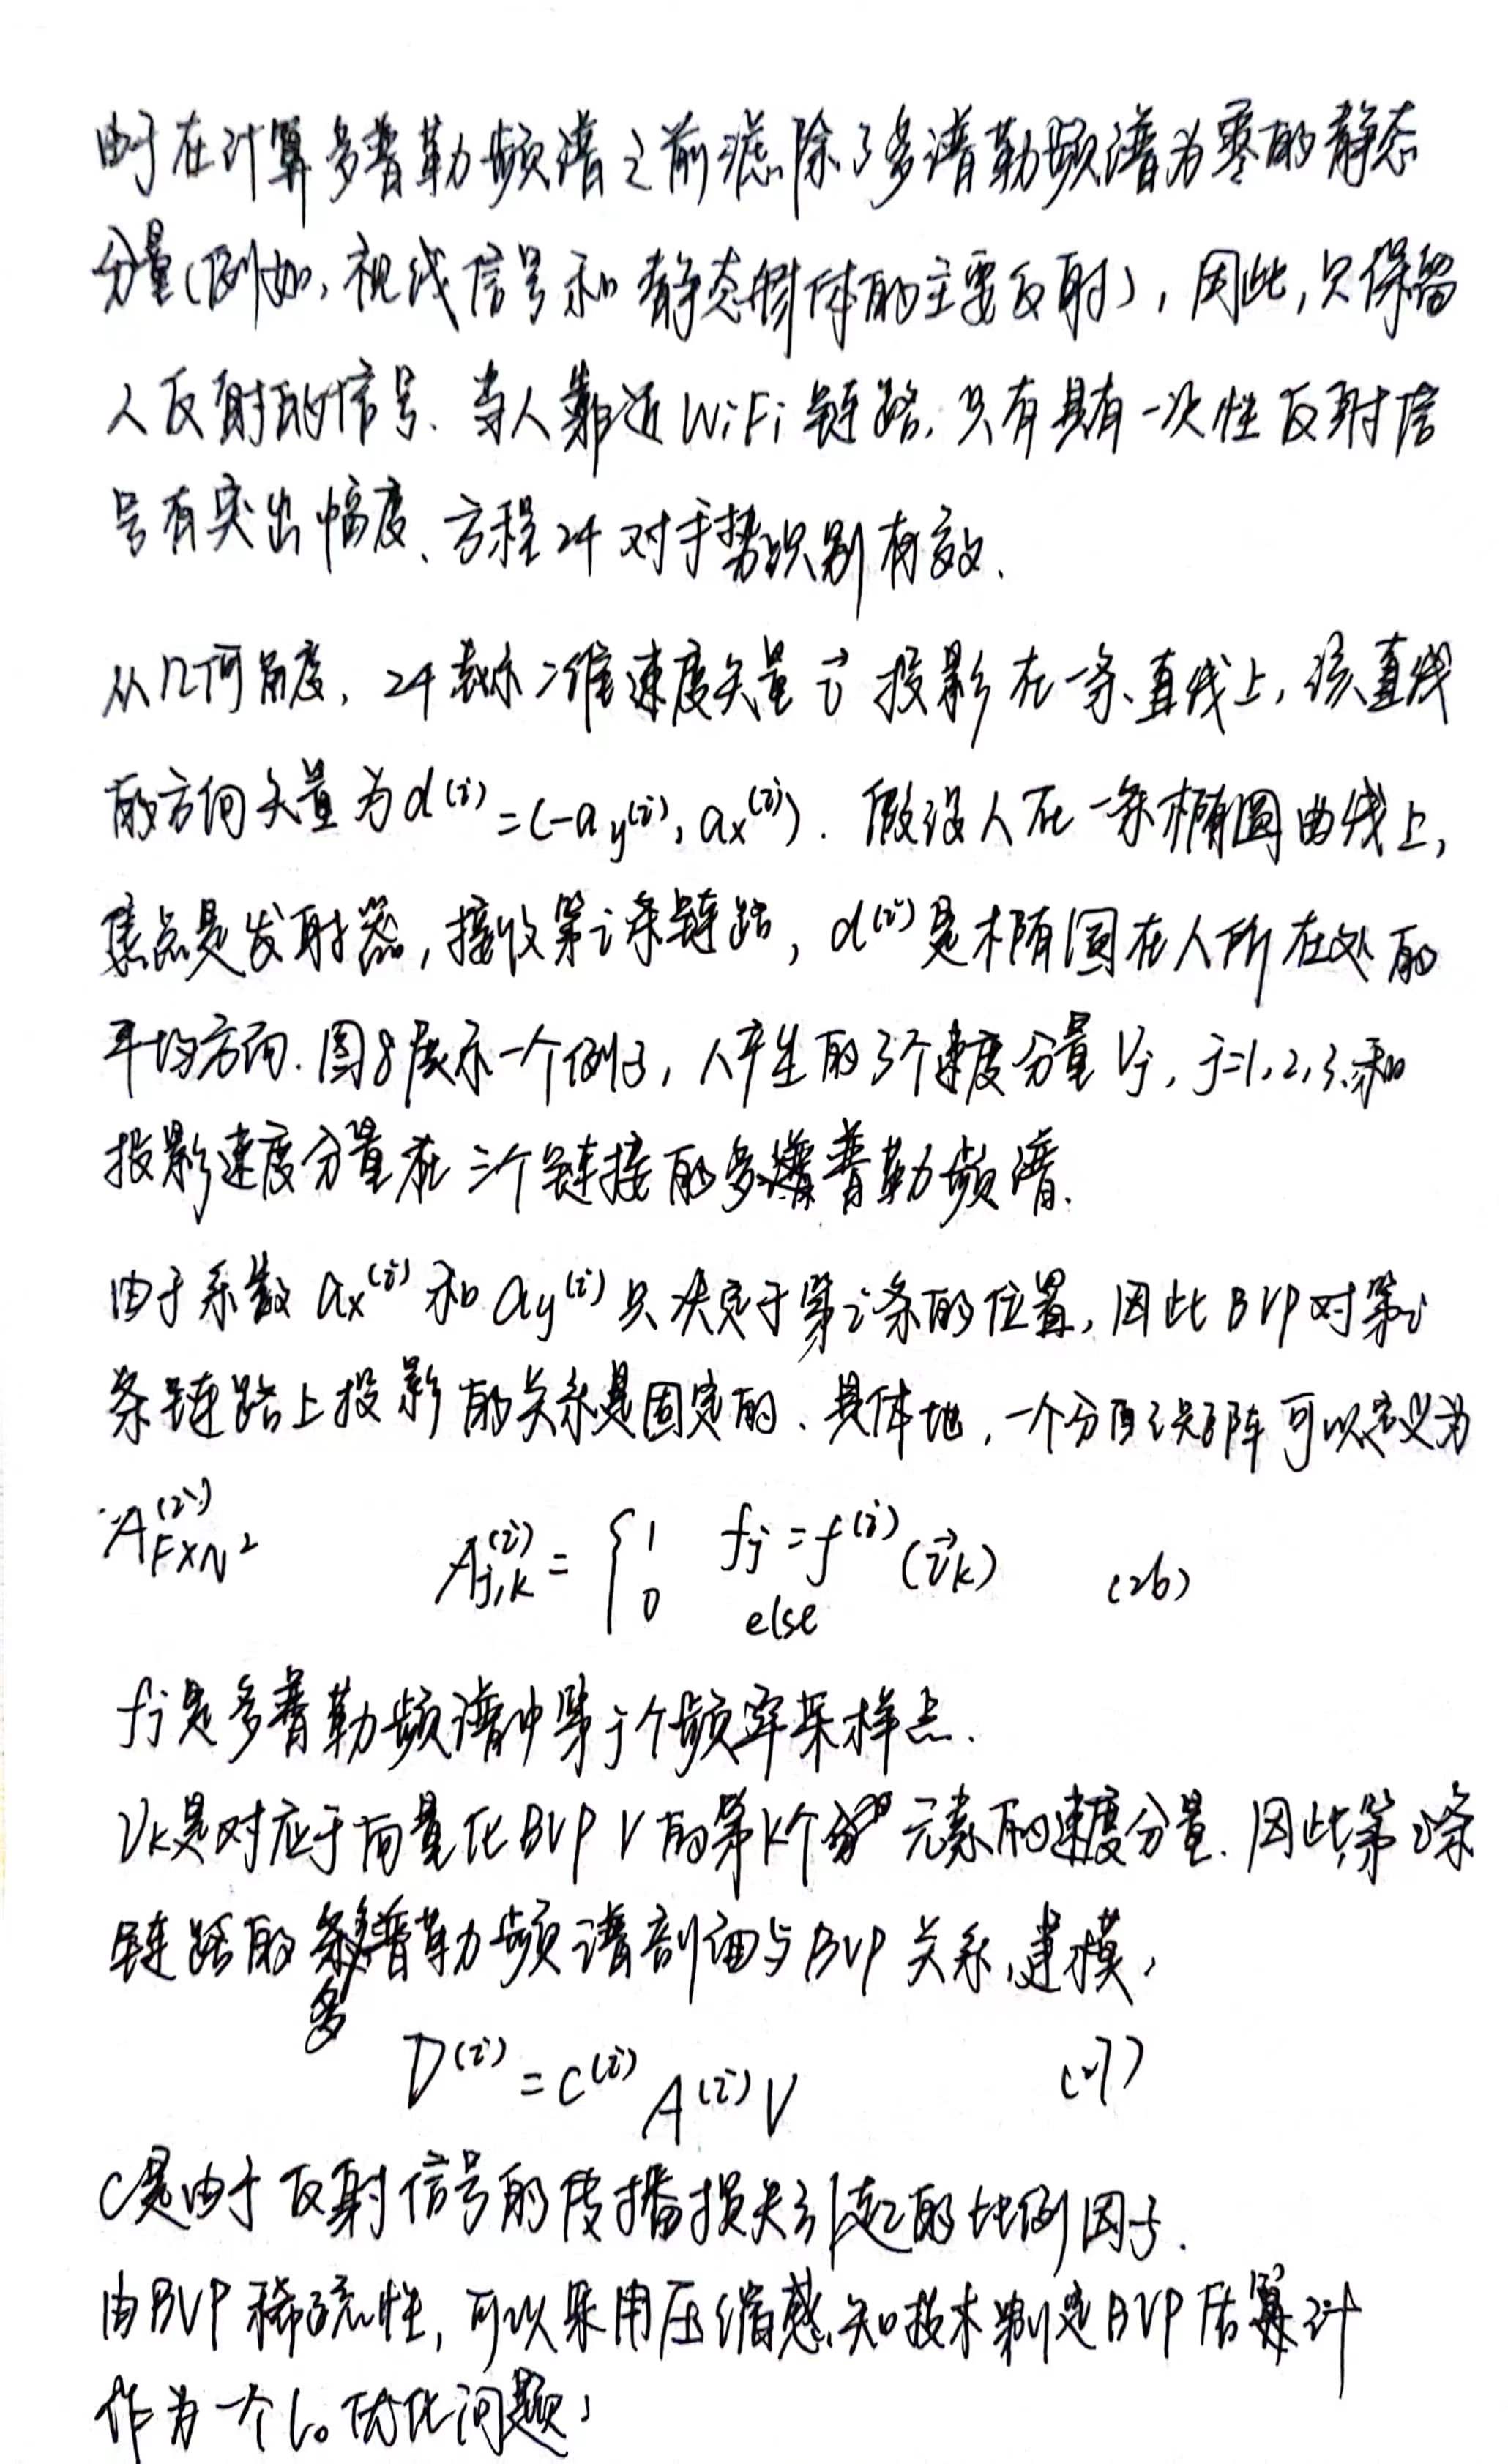 由于在计算多普勒频谱之前滤除了多谱勒频谱为零的静态
分量(例如,视线信号和静态物体的主要反射),因此,只保留
人反射的信号.当人靠近WiFi链路,只有具有一次性反射信
号有突出幅度、方程24对手势识别有效.
从几何角度,24表示二维速度矢量v⃗投影在一条直线上,该直线
的方向矢量为d^(i)=(-a_y^(i), a_x^(i)).假设人在一条椭圆曲线上,
焦点是发射器,接收第i条链路,d^(i)是椭圆在人所在处的
平均方向.图8展示一个例子,人产生的3个速度分量Vj,j=1,2,3,和
投影速度分量在三个链接的多普勒频谱.
由于系数a_x^(i)和a_y^(i)只决定于第i条的位置,因此BVP对第i
条链路上投影的关系是固定的.具体地,一个分配矩阵可以定义为
A_{F×N²}^(i) A_{j,k}^(i) = { 1 f_j=f^(i)(v⃗_k) (26)
0 else
fj是多普勒频谱中第j个频率采样点.
Vk是对应于向量化BVP V的第k个元素的速度分量.因此,第i条
链路的多普勒频谱剖面与BVP关系,建模,
D^(i)=C^(i)A^(i)V (27)
C是由于反射信号的传播损失引起的比例因子.
由BVP稀疏性,可以采用压缩感知技术制定BVP估计
作为一个l₀优化问题: